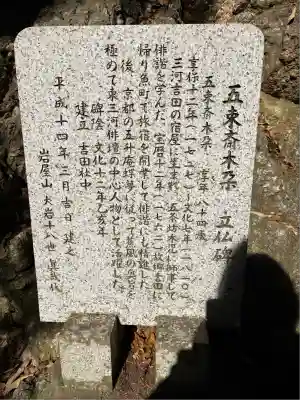 五束斎木朶 立仏碑
五束斎木朶 淳年 八十四歳
享保十二年(一七二七)~文化七年(一八一〇)
三河吉田の宿屋に生れ、五条坊木児に師事して
俳諧を学んだ。宝暦十二年(一七六二)故郷吉田に
帰り魚町で旅宿を開業して俳諧にも精進した。
後、京都の五升庵蝶夢に従って蕉風の真髄を
極めて東三河俳壇の中心人物として活躍した。
碑陰 文化十二年乙亥
建立 吉田社中
平成十四年二月吉日 建之
岩屋山 大岩十八世